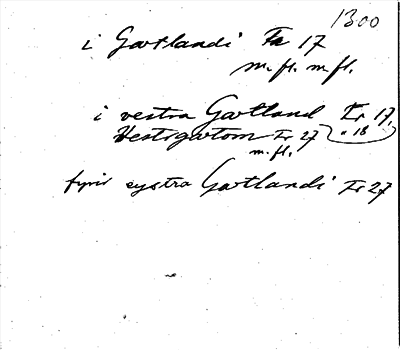 1300
i Gartlandi Fr 17
m. fl. m. fl.
i vestra Gartland Fr 17,
Vestrgartom Fr 27 " 18
m. fl.
fyrir eystra Gartlandi Fr 27